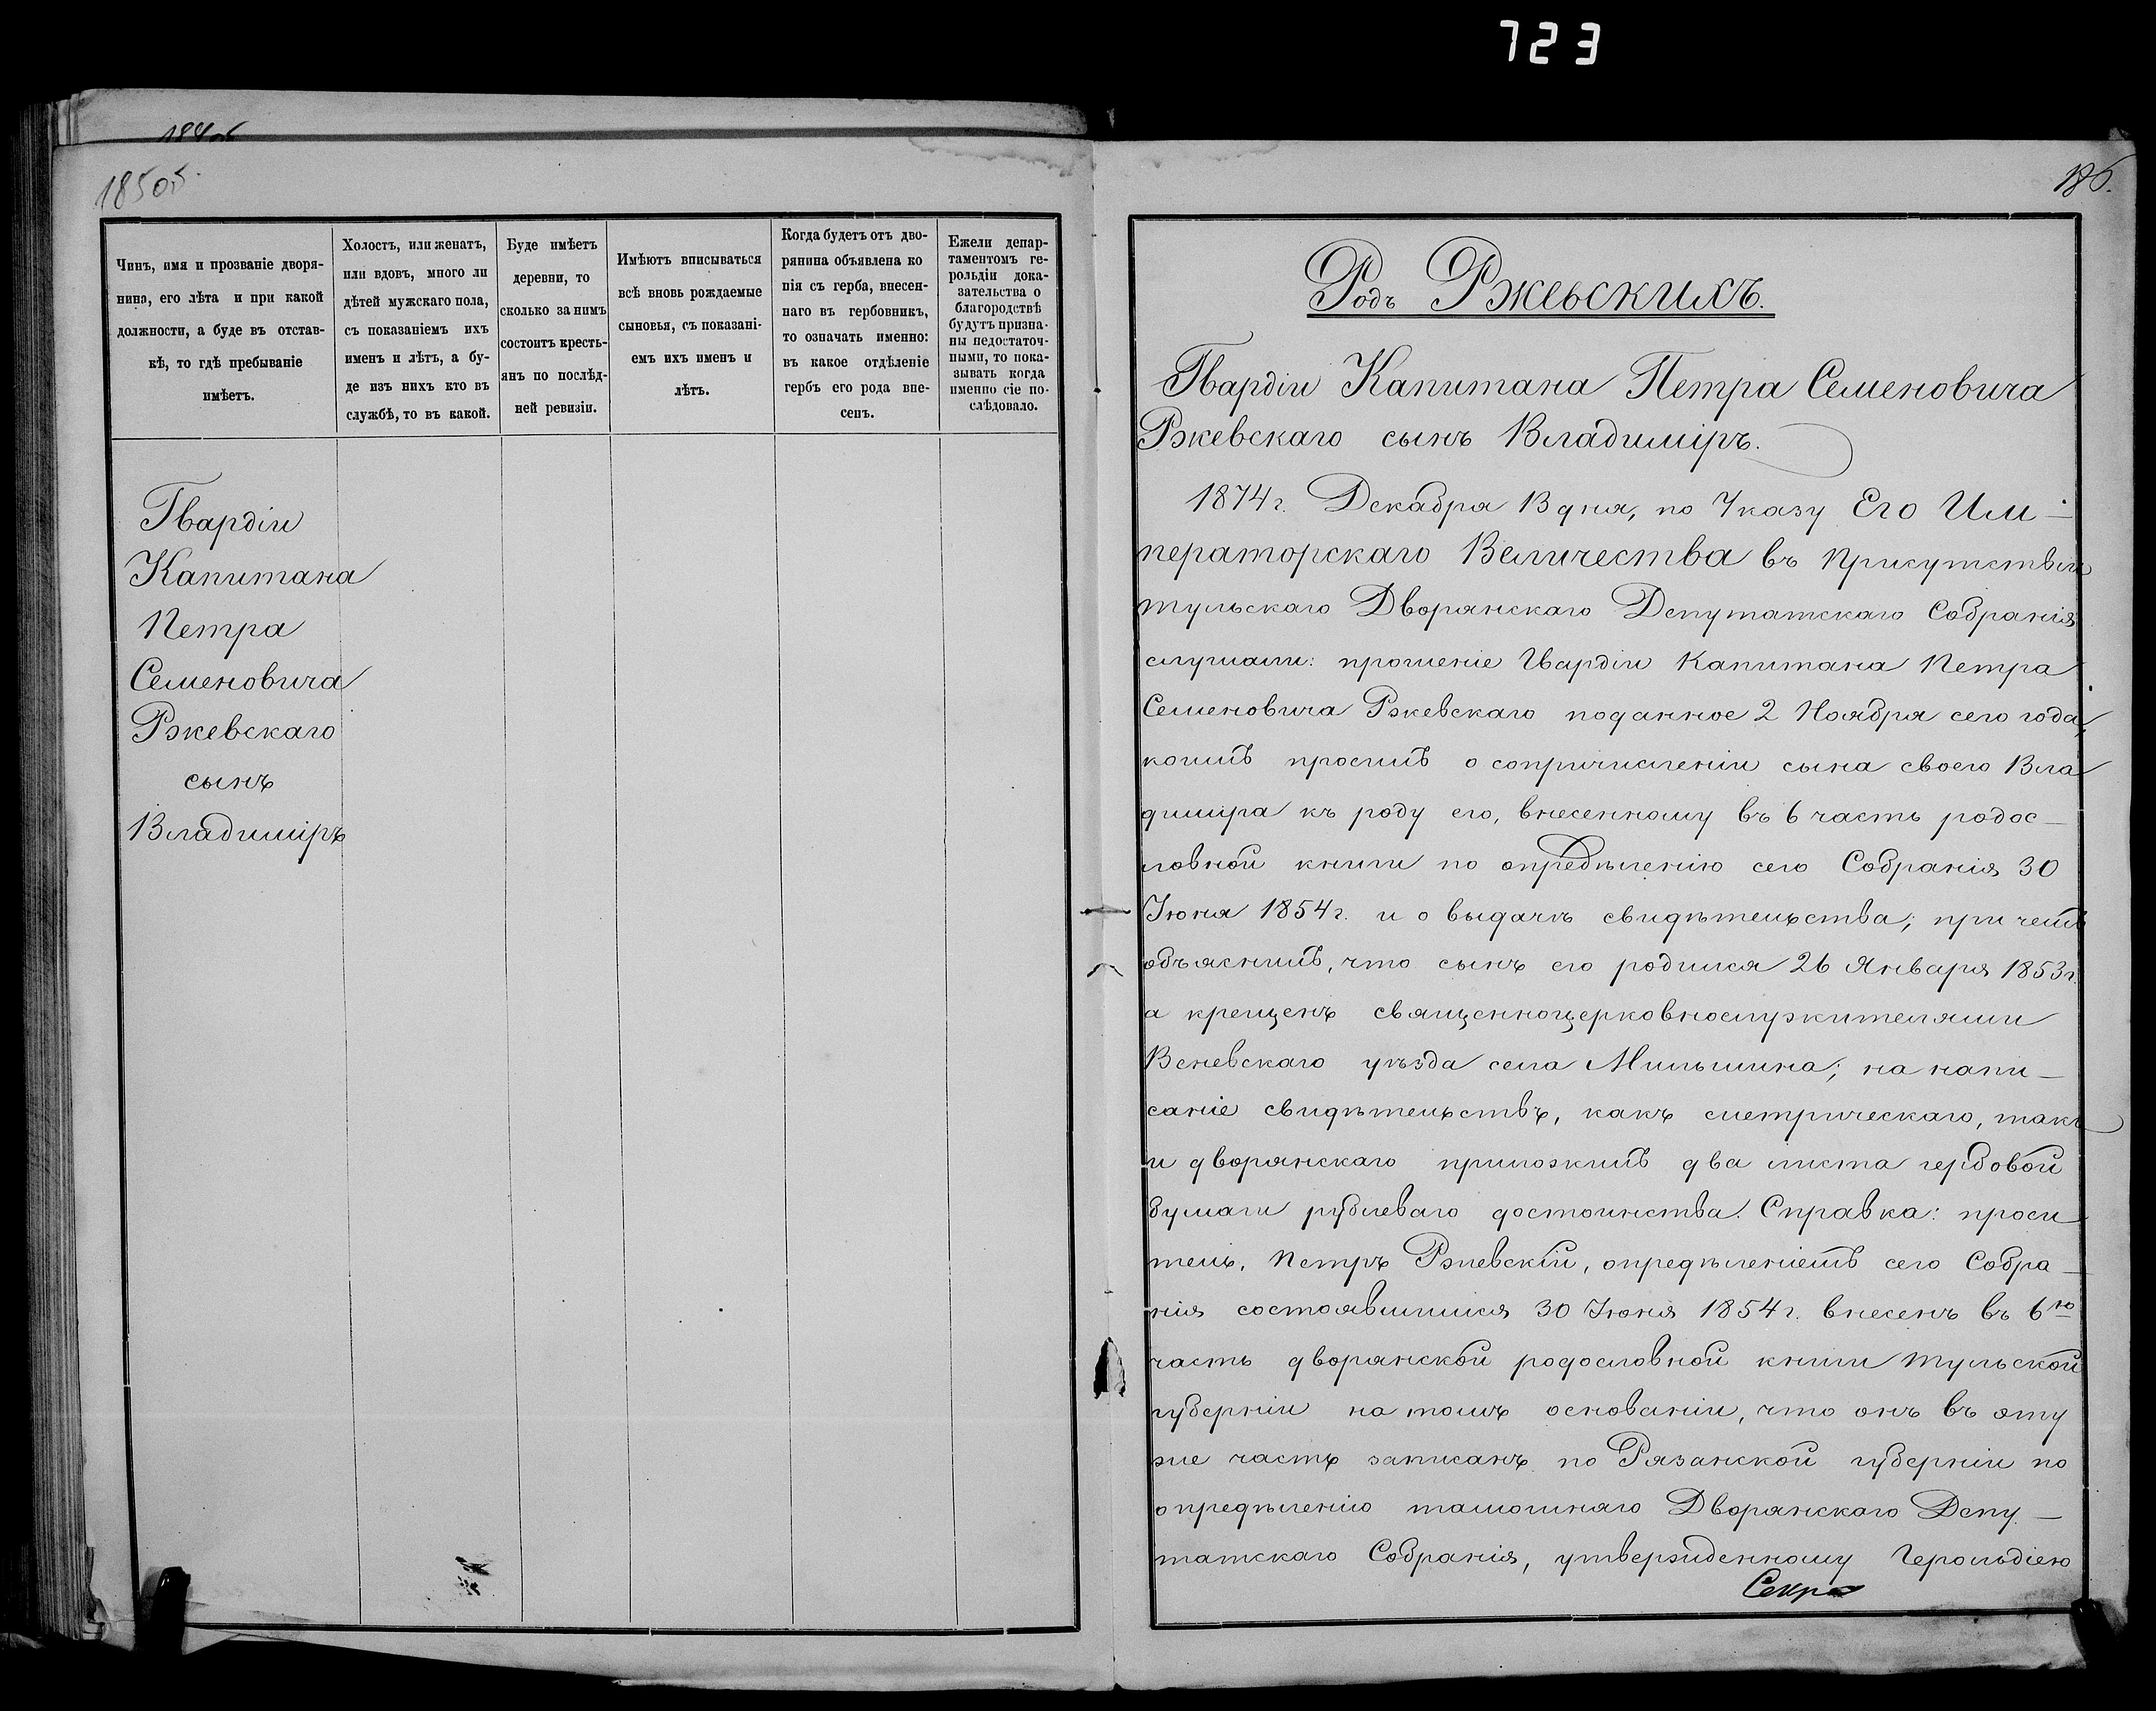 723
185об.
186.
Чинъ, имя и прозваніе дворя-
нина, его лѣта и при какой
должности, а буде въ отстав-
кѣ, то гдѣ пребываніе
имѣетъ.
Холостъ, или женатъ,
или вдовъ, много ли
дѣтей мужскаго пола,
съ показаніемъ ихъ
именъ и лѣтъ, а бу-
де изъ нихъ кто въ
службѣ, то въ какой.
Буде имѣетъ
деревни, то
сколько за нимъ
состоитъ кресть-
янъ по послѣд-
ней ревизіи.
Имѣютъ вписываться
всѣ вновь рождаемые
сыновья, съ показані-
емъ ихъ именъ и
лѣтъ.
Когда будетъ отъ дво-
рянина объявлена ко
пія съ герба, внесен-
наго въ гербовникъ,
то означать именно:
въ какое отдѣленіе
гербъ его рода вне-
сенъ.
Ежели депар-
таментомъ ге-
рольдіи дока-
зательства о
благородствѣ
будутъ призна-
ны недостаточ-
ными, то пока-
зывать когда
именно сіе по-
слѣдовало.
Гвардіи
Капитана
Петра
Семеновича
Ржевскаго
сынъ
Владиміръ
Родъ Ржевскихъ.
Гвардіи Капитана Петра Семеновича
Ржевскаго сынъ Владиміръ.
1874г. Декабря 13 дня, по Указу Его Им-
ператорскаго Величества въ Присутствіи
Тульскаго Дворянскаго Депутатскаго Собранія
слушали: прошеніе Гвардіи Капитана Петра
Семеновича Ржевскаго поданное 2 Ноября сего года,
коимъ проситъ о сопричисленіи сына своего Вла
диміра къ роду его, внесенному въ 6 часть родос-
ловной книги по опредѣленію сего Собранія 30
Іюня 1854г. и о выдачѣ свидѣтельства; при чемъ
объяснилъ, что сынъ его родился 26 Января 1853г.
а крещенъ священноцерковнослужителями
Веневскаго уѣзда села Мильшина; на напи-
саніе свидѣтельствъ, какъ метрическаго, такъ
и дворянскаго приложилъ два листа гербовой
бумаги рублеваго достоинства. Справка: проси
тель, Петръ Ржевскій, опредѣленіемъ сего Собра-
нія состоявшимся 30 Іюня 1854г. внесенъ въ 6ю
часть дворянской родословной книги Тульской
губерніи на томъ основаніи, что онъ въ эту
же часть записанъ по Рязанской губерніи по
опредѣленію тамошняго Дворянскаго Депу-
татскаго Собранія, утвержденному Герольдіею
Секре